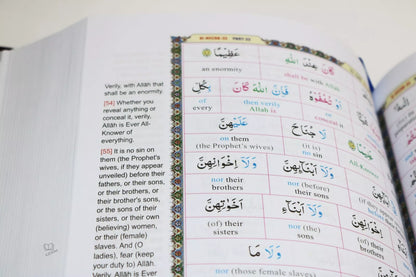 Al-AHZAB-33 PART 22
Verily, with Allâh that
shall be an enormity.
[54] Whether you
reveal anything or
conceal it, verily,
Allâh is Ever All-
Knower of
everything.
[55] It is no sin on
them (the Prophet's
wives, if they appear
unveiled) before their
fathers, or their sons,
or their brothers, or
their brother's sons,
or the sons of their
sisters, or their own
(believing) women,
or their (female)
slaves. And (O
ladies), fear (keep
your duty to) Allâh.
Verily, Allâh is Ever
كَانَ عِنْدَ اللَّهِ عَظِيمًا
an enormity shall be with Allah
أَوْ تُخْفُوهُ فَإِنَّ اللَّهَ كَانَ بِكُلِّ
of every then verily Allah is or conceal it
لَا جُنَاحَ عَلَيْهِنَّ
on them (the Prophet's wives) (it is) no sin
وَلَا إِخْوَانِهِنَّ
nor their brothers nor (before) their sons
وَلَا أَبْنَاءِ أَخَوَاتِهِنَّ
(of) their sisters nor (the) sons
وَلَا مَا
nor (those female slaves)